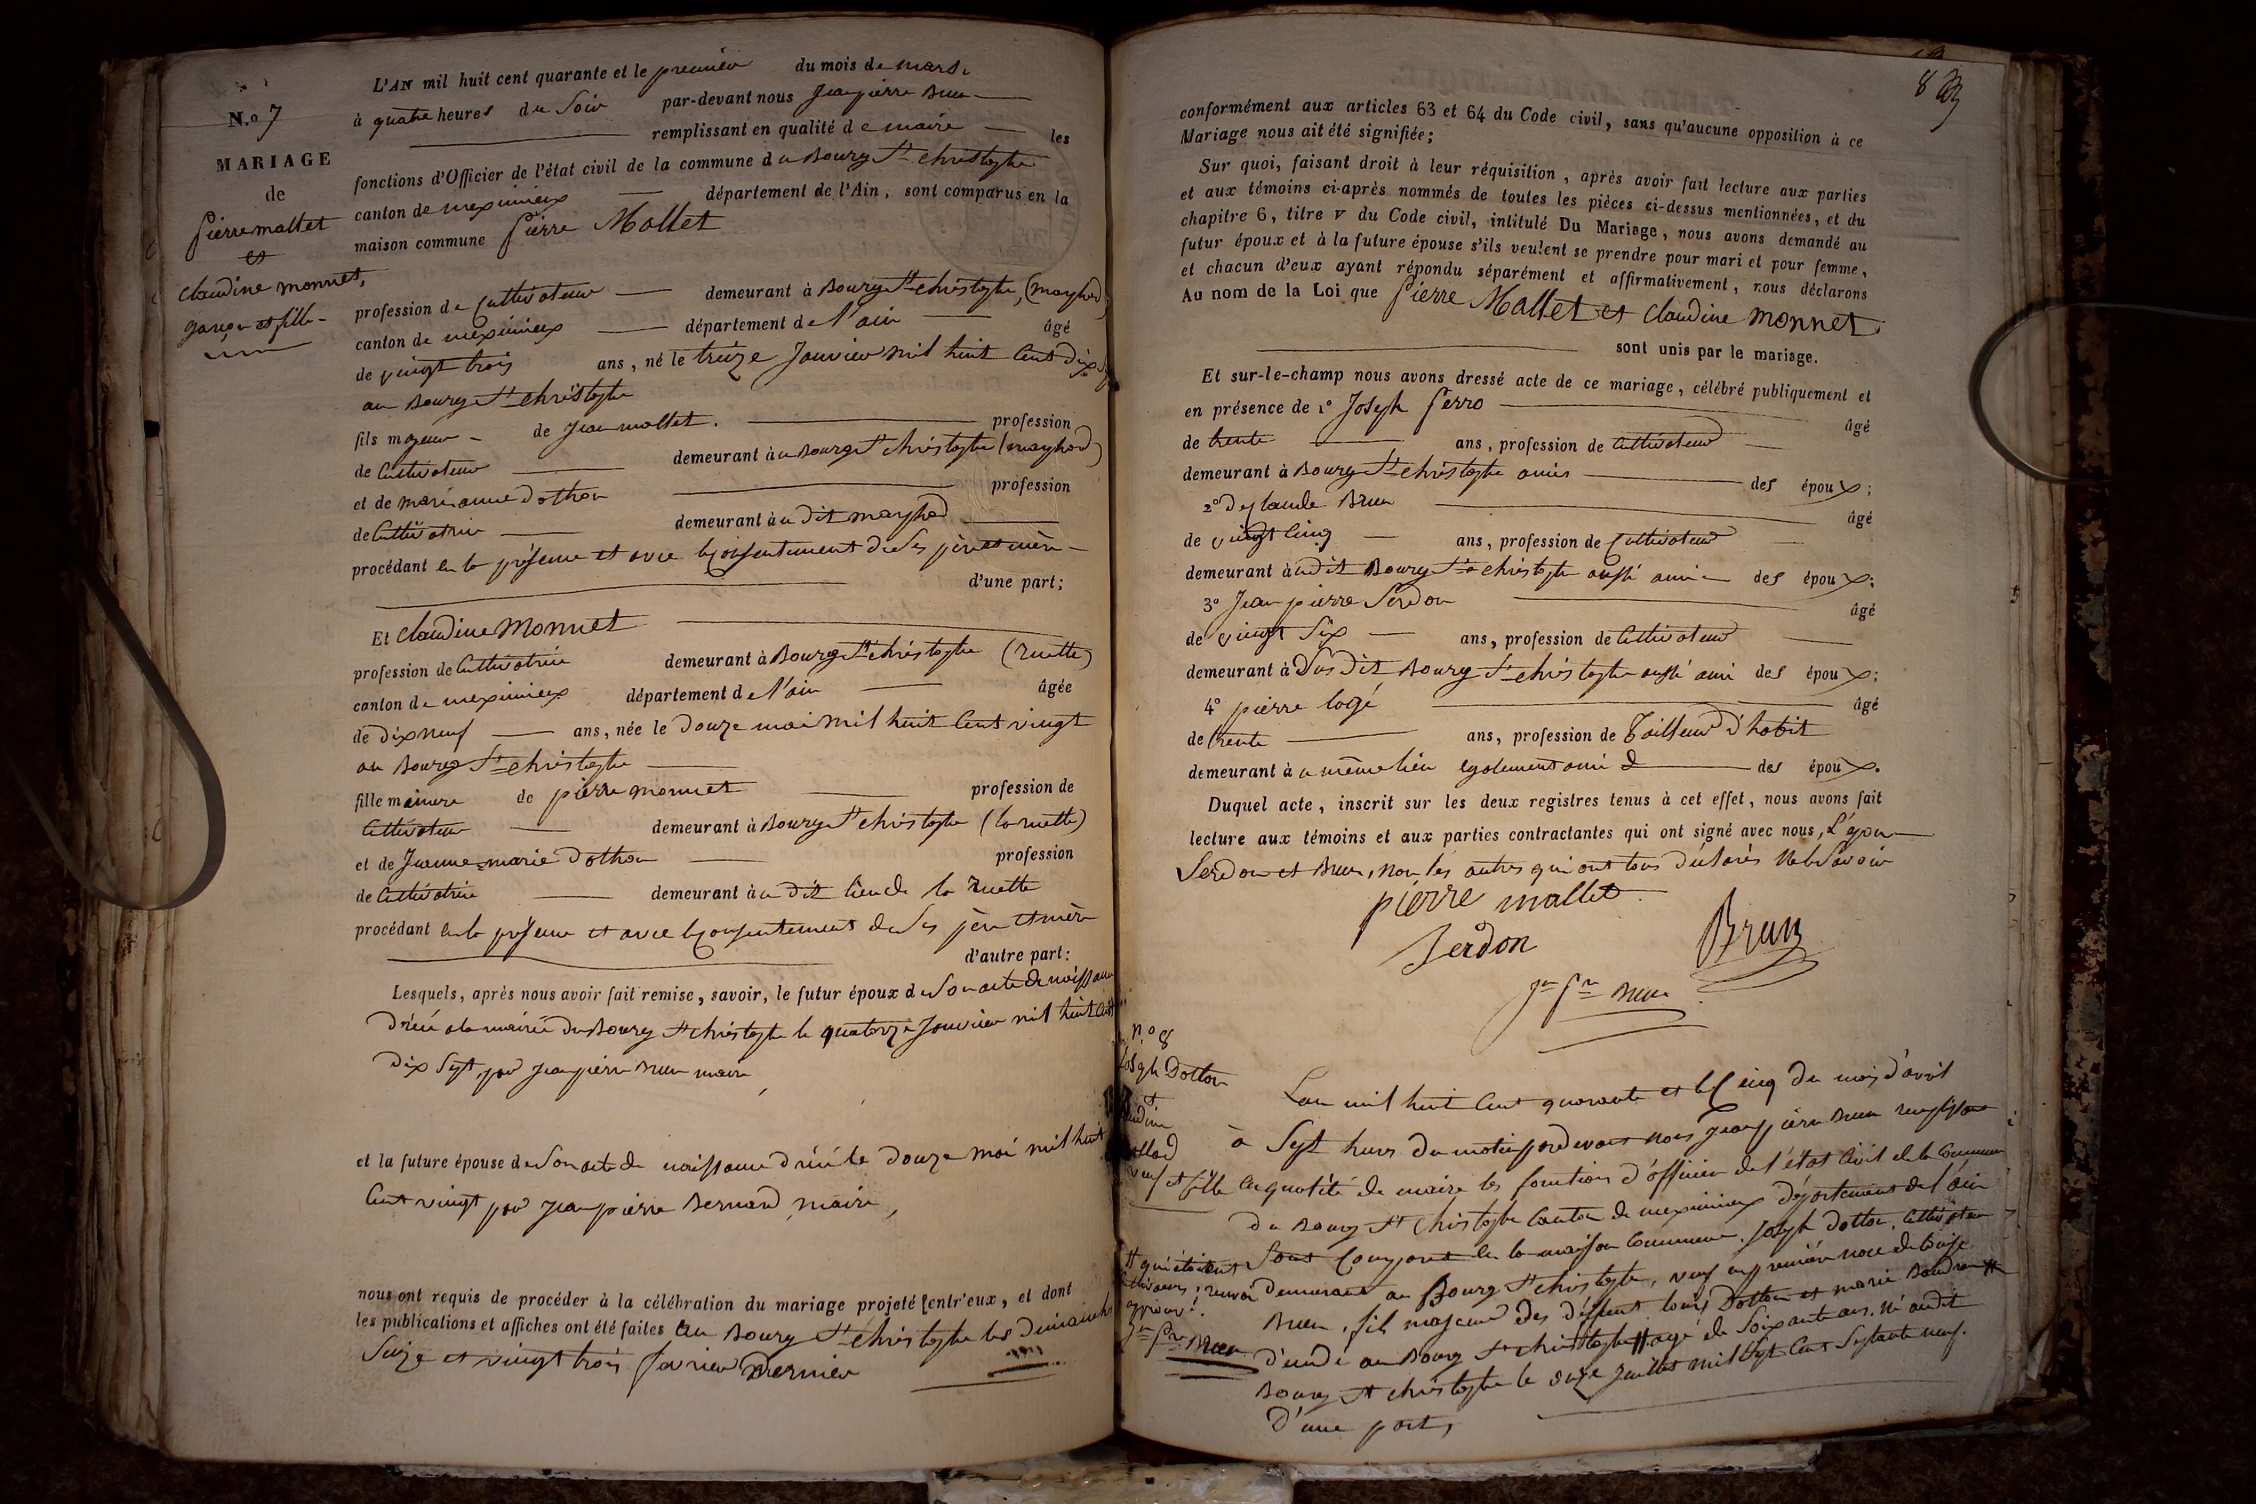 N.o 7
MARIAGE
de
Pierre mallet
et
claudine monnet,
garçon et fille
L'AN mil huit cent quarante et le premier du mois de mars
à quatre heures du Soir par-devant nous Jeanpierre Brun
remplissant en qualité de maire les
fonctions d'Officier de l'état civil de la commune du Bourg St christophe
canton de meximieux département de l'Ain, sont comparus en la
maison commune Pierre Mallet
profession de Cultivateur demeurant à Bourg St christophe,
canton de meximieux département de l'ain âgé
de vingt trois ans, né le treize Janvier mil huit Cent dix
au Bourg St christophe
fils majeur de Jean mallet. profession
de Cultivateur demeurant au Bourg St christophe
et de marianne dothon profession
de Cultivatrice demeurant au dit
procédant en la présence et avec le consentement de Ses père et mère
d'une part;
Et claudine Monnet
profession de Cultivatrice demeurant à Bourg St christophe (ruette)
canton de meximieux département de l'ain âgée
de dix neuf ans, née le douze mai mil huit Cent vingt
au Bourg St christophe
fille mineure de pierre monnet profession de
Cultivateur demeurant à Bourg St christophe (la ruette)
et de Jeanne-marie dothon profession
de Cultivatrice demeurant au dit lieu de la ruette
procédant en la présence et avec le consentement de Ses père et mère
d'autre part:
Lesquels, après nous avoir fait remise, savoir, le futur époux de Son acte de naissance
dréssé a la mairie du Bourg St christophe le quatorze Janvier mil huit Cent
dix Sept, par Jeanpierre Brun maire,
et la future épouse de Son acte de naissance dréssé le douze mai mil huit
Cent vingt par Jeanpierre Bernard, maire,
nous ont requis de procéder à la célébration du mariage projeté entr'eux, et dont
les publications et affiches ont été faites au Bourg St christophe les dimanches
Seize et vingt trois fevrier dernier
8
conformément aux articles 63 et 64 du Code civil, sans qu'aucune opposition à ce
Mariage nous ait été signifiée;
Sur quoi, faisant droit à leur réquisition, après avoir fait lecture aux parties
et aux témoins ci-après nommés de toutes les pièces ci-dessus mentionnées, et du
chapitre 6, titre v du Code civil, intitulé Du Mariage, nous avons demandé au
futur époux et à la future épouse s'ils veulent se prendre pour mari et pour femme,
et chacun d'eux ayant répondu séparément et affirmativement, nous déclarons
Au nom de la Loi que Pierre Mallet et claudine monnet
sont unis par le mariage.
Et sur-le-champ nous avons dressé acte de ce mariage, célébré publiquement et
en présence de 1o Joseph Perro âgé
de trente ans, profession de Cultivateur
demeurant à Bourg St christophe amis des époux;
2o Brun âgé
de vingt Cinq ans, profession de Cultivateur
demeurant au dit Bourg St christophe aussi ami des époux;
3o Jean pierre Serdon âgé
de vingt Six ans, profession de Cultivateur
demeurant à Sus dit Bourg St christophe aussi ami des époux;
4o pierre logé âgé
de trente ans, profession de Tailleur d'habit
demeurant au même lieu egalement ami des époux.
Duquel acte, inscrit sur les deux registres tenus à cet effet, nous avons fait
lecture aux témoins et aux parties contractantes qui ont signé avec nous, L'époux
Serdon et Brun, non les autres qui ont tous déclarés ne le Savoir
pierre mallet
Serdon Brun
Jn Pre Brun
n.o 8
Joseph Dotton
et
veuf et fille
Lan mil huit Cent quarante et le Cinq du mois d'avril
à Sept heures du matin pardevant nous Jeanpierre Brun remplissant
en qualité de maire les fonctions d'officier de l'état Civil de la Commune
du Bourg St christophe Canton de meximieux département de l'ain
Sont Comparus en la maison Commune. Joseph dotton, Cultivateur
demeurant au Bourg St christophe, veuf en première noce de Louise
Brun, fils majeur des défunt louis Dotton et marie
au Bourg St christophe agé de Soixante ans, né audit
Bourg St christophe le onze Juillet mil Sept Cent Septante neuf.
d'une part,
qui étaient
cultivateurs, renvoi
approuvé.
Jn Pre Brun